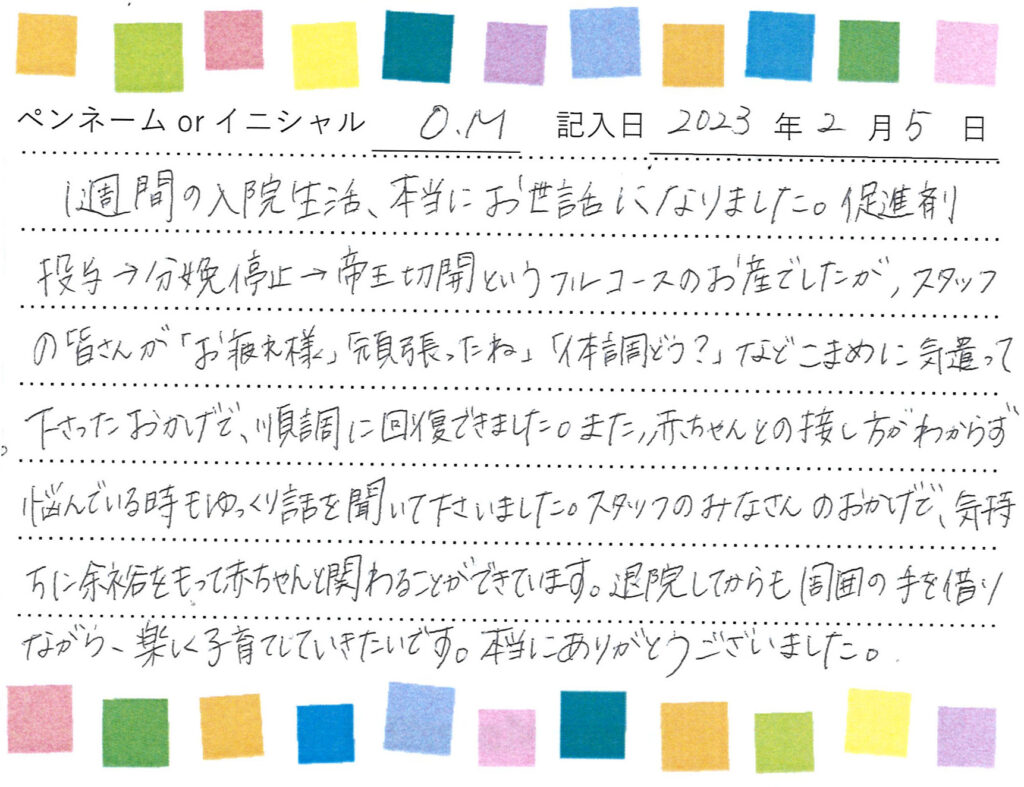 ペンネーム or イニシャル O.M 記入日 2023 年 2 月 5 日
1週間の入院生活、本当にお世話になりました。促進剤
投与→分娩停止→帝王切開というフルコースのお産でしたが、スタッフ
の皆さんが「お疲れ様」「頑張ったね」「体調どう?」などこまめに気遣って
下さったおかげで、順調に回復できました。また、赤ちゃんとの接し方がわからず
悩んでいる時もゆっくり話を聞いて下さいました。スタッフのみなさんのおかげで、気持
ちに余裕をもって赤ちゃんと関わることができています。退院してからも周囲の手を借り
ながら、楽しく子育てしていきたいです。本当にありがとうございました。